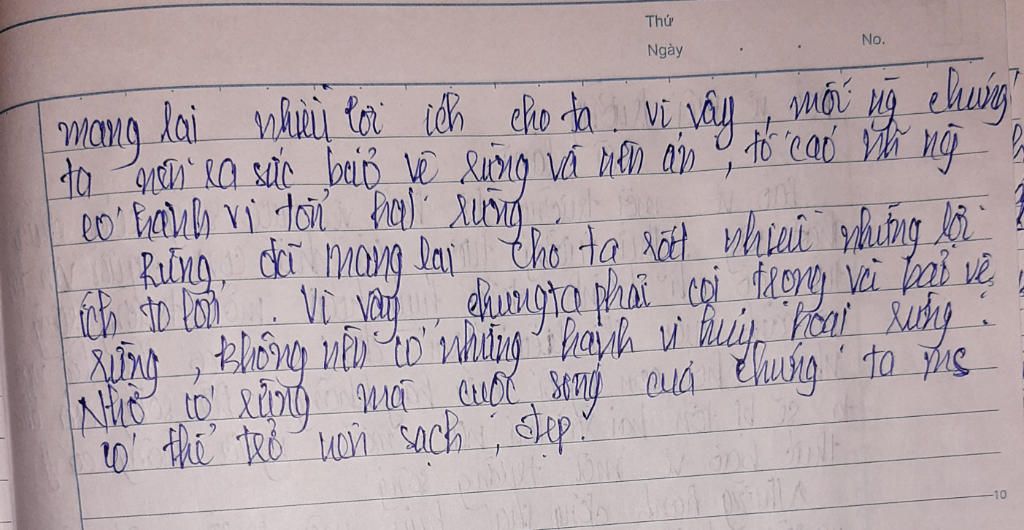 Thứ
Ngày . . No.
mang lại nhiều lợi ích cho ta. Vì vậy, mỗi ng chúng
ta nên ra sức bảo vệ rừng và nên án, tố cáo nh ng
có hành vi tổn hại rừng.
Rừng, đã mang lại cho ta rất nhiều những lợi
ích to lớn. Vì vậy, chúng ta phải coi trọng và bảo vệ
rừng, không nên có những hành vi hủy hoại rừng.
Nhờ có rừng mà cuộc sống của chúng ta ms
có thể trở nên sạch, đẹp.
10